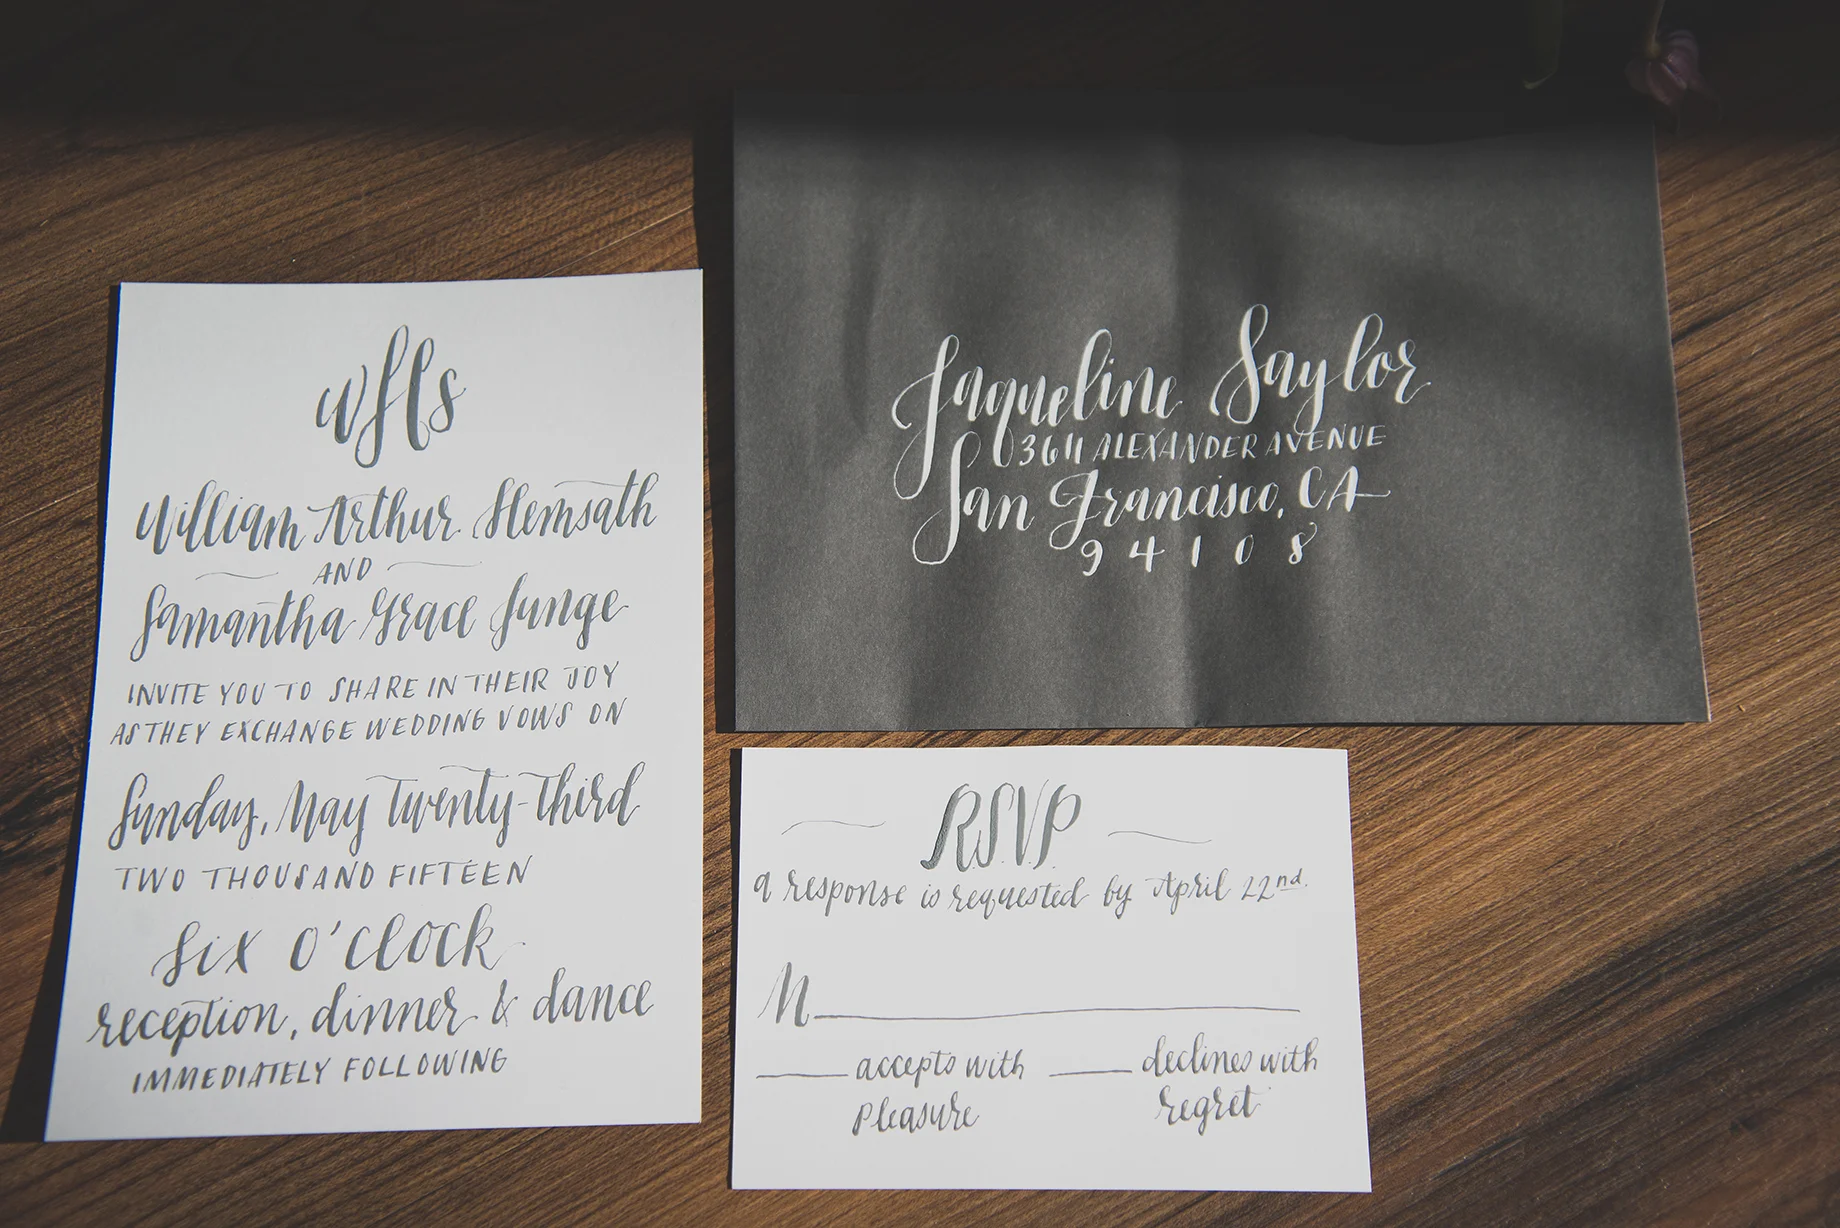 wfls
William Arthur Hemsath
AND
Samantha Grace Junge
INVITE YOU TO SHARE IN THEIR JOY
AS THEY EXCHANGE WEDDING VOWS ON
Sunday, May twenty-third
TWO THOUSAND FIFTEEN
Six o'clock
reception, dinner & dance
IMMEDIATELY FOLLOWING
Jaqueline Saylor
3611 ALEXANDER AVENUE
San Francisco, CA
94108
R.S.V.P.
a response is requested by April 22nd.
M
accepts with pleasure
declines with regret